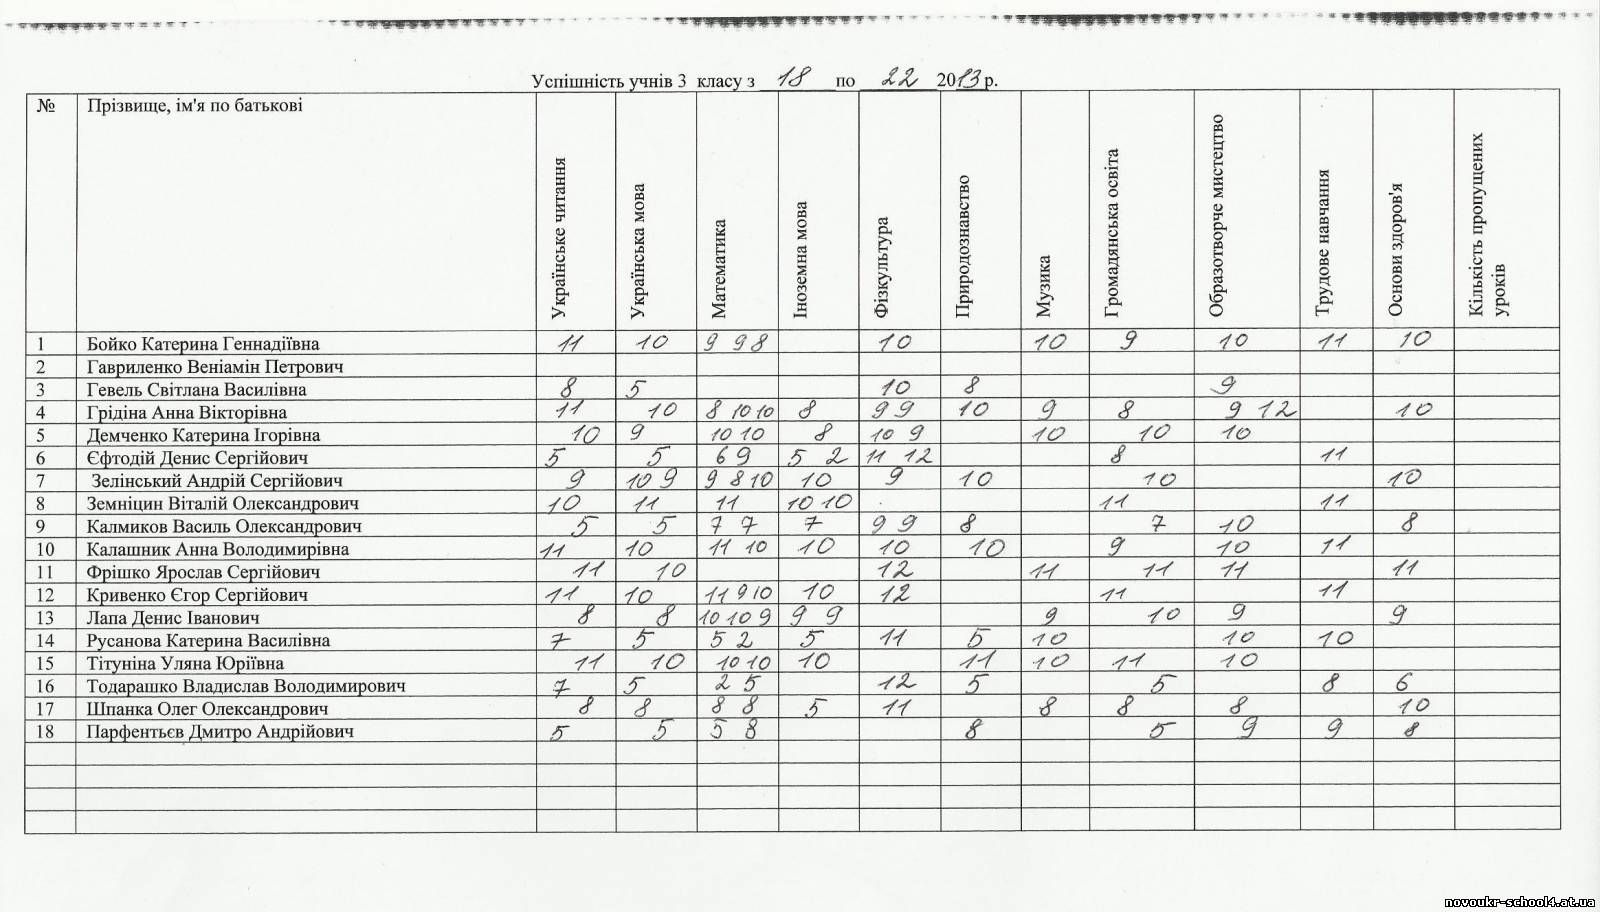 Успішність учнів 3 класу з 18 по 22 2013 р.
№ Прізвище, ім'я по батькові Українське читання Українська мова Математика Іноземна мова Фізкультура Природознавство Музика Громадянська освіта Образотворче мистецтво Трудове навчання Основи здоров'я Кількість пропущених уроків
1 Бойко Катерина Геннадіївна 11 10 9 9 8 10 10 9 10 11 10
2 Гавриленко Веніамін Петрович
3 Гевель Світлана Василівна 8 5 10 8 9
4 Грідіна Анна Вікторівна 11 10 8 10 10 8 9 9 10 9 8 9 12 10
5 Демченко Катерина Ігорівна 10 9 10 10 8 10 9 10 10 10
6 Єфтодій Денис Сергійович 5 5 6 9 5 2 11 12 8 11
7 Зелінський Андрій Сергійович 9 10 9 9 8 10 10 9 10 10 10
8 Земніцин Віталій Олександрович 10 11 11 10 10 11 11
9 Калмиков Василь Олександрович 5 5 7 7 7 9 9 8 7 10 8
10 Калашник Анна Володимирівна 11 10 11 10 10 10 10 9 10 11
11 Фрішко Ярослав Сергійович 11 10 12 11 11 11 11
12 Кривенко Єгор Сергійович 11 10 11 9 10 10 12 11 11
13 Лапа Денис Іванович 8 8 10 10 9 9 9 9 10 9 9
14 Русанова Катерина Василівна 7 5 5 2 5 11 5 10 10 10
15 Тітуніна Уляна Юріївна 11 10 10 10 10 11 10 11 10
16 Тодарашко Владислав Володимирович 7 5 2 5 12 5 5 8 6
17 Шпанка Олег Олександрович 8 8 8 8 5 11 8 8 8 10
18 Парфентьєв Дмитро Андрійович 5 5 5 8 8 5 9 9 8
novoukr-school4.at.ua